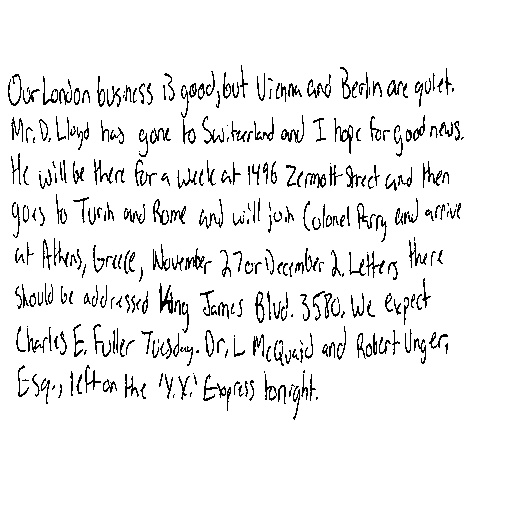 Our London business is good, but Vienna and Berlin are quiet.
Mr. D. Lloyd has gone to Switzerland and I hope for good news.
He will be there for a week at 1496 Zermott Street and then
goes to Turin and Rome and will join Colonel Parry and arrive
at Athens, Greece, November 27 or December 2. Letters there
should be addressed King James Blvd. 3580. We expect
Charles E. Fuller Tuesday. Dr. L McQuaid and Robert Unger,
Esq., left on the 'Y.X.' Express tonight.